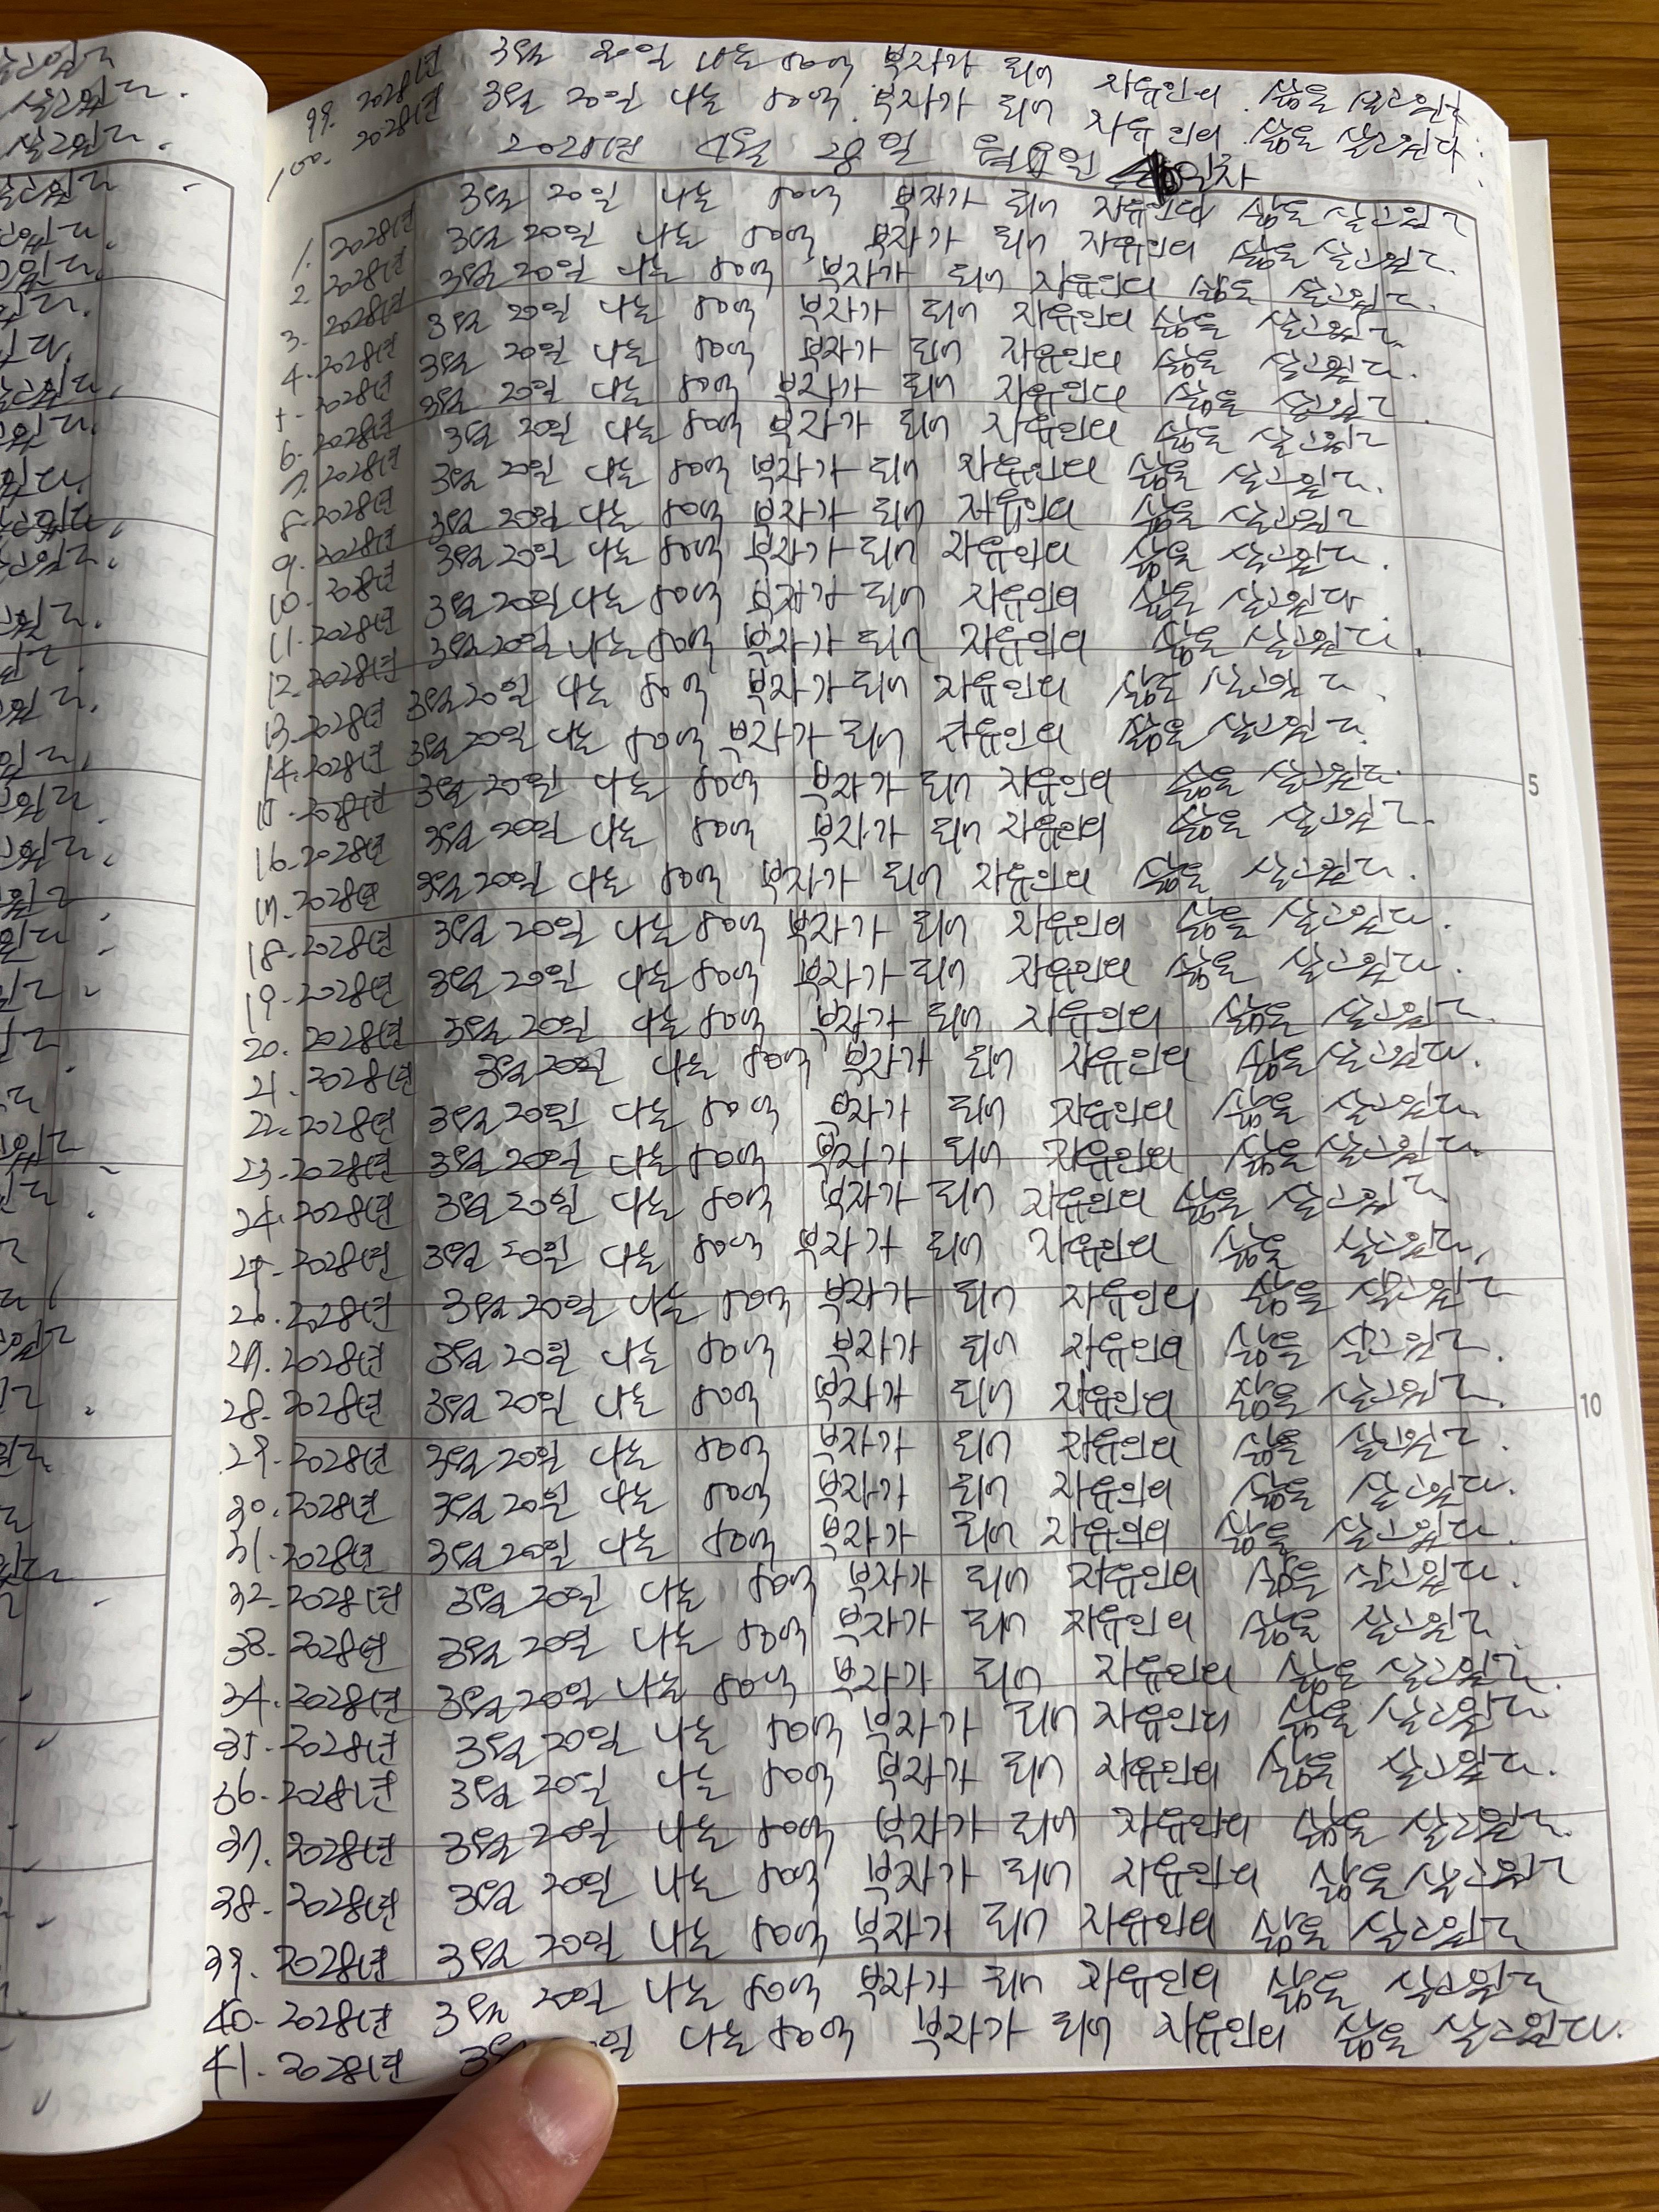 99. 2028년 3월 20일 나는 80억 부자가 되어 자유인의 삶을 살고있다.
100. 2028년 3월 20일 나는 80억 부자가 되어 자유인의 삶을 살고있다.
4월 28일 월요일 일차
1. 2028년 3월 20일 나는 80억 부자가 되어 자유인의 삶을 살고있다
2. 2028년 3월 20일 나는 80억 부자가 되어 자유인의 삶을 살고있다.
3. 2028년 3월 20일 나는 80억 부자가 되어 자유인의 삶을 살고있다.
4. 2028년 3월 20일 나는 80억 부자가 되어 자유인의 삶을 살고있다.
5. 2028년 3월 20일 나는 80억 부자가 되어 자유인의 삶을 살고있다.
6. 2028년 3월 20일 나는 80억 부자가 되어 자유인의 삶을 살고있다.
7. 2028년 3월 20일 나는 80억 부자가 되어 자유인의 삶을 살고있다
8. 2028년 3월 20일 나는 80억 부자가 되어 자유인의 삶을 살고있다.
9. 2028년 3월 20일 나는 80억 부자가 되어 자유인의 삶을 살고있다
10. 2028년 3월 20일 나는 80억 부자가 되어 자유인의 삶을 살고있다.
11. 2028년 3월 20일 나는 80억 부자가 되어 자유인의 삶을 살고있다
12. 2028년 3월 20일 나는 80억 부자가 되어 자유인의 삶을 살고있다.
13. 2028년 3월 20일 나는 80억 부자가 되어 자유인의 삶을 살고있다.
14. 2028년 3월 20일 나는 80억 부자가 되어 자유인의 삶을 살고있다.
15. 2028년 3월 20일 나는 80억 부자가 되어 자유인의 삶을 살고있다.
5
16. 2028년 3월 20일 나는 80억 부자가 되어 자유인의 삶을 살고있다.
17. 2028년 3월 20일 나는 80억 부자가 되어 자유인의 삶을 살고있다.
18. 2028년 3월 20일 나는 80억 부자가 되어 자유인의 삶을 살고있다.
19. 2028년 3월 20일 나는 80억 부자가 되어 자유인의 삶을 살고있다.
20. 2028년 3월 20일 나는 80억 부자가 되어 자유인의 삶을 살고있다.
21. 2028년 3월 20일 나는 80억 부자가 되어 자유인의 삶을 살고있다.
22. 2028년 3월 20일 나는 80억 부자가 되어 자유인의 삶을 살고있다.
23. 2028년 3월 20일 나는 80억 부자가 되어 자유인의 삶을 살고있다.
24. 2028년 3월 20일 나는 80억 부자가 되어 자유인의 삶을 살고있다.
25. 2028년 3월 20일 나는 80억 부자가 되어 자유인의 삶을 살고있다.
26. 2028년 3월 20일 나는 80억 부자가 되어 자유인의 삶을 살고있다
27. 2028년 3월 20일 나는 80억 부자가 되어 자유인의 삶을 살고있다.
28. 2028년 3월 20일 나는 80억 부자가 되어 자유인의 삶을 살고있다.
10
29. 2028년 3월 20일 나는 80억 부자가 되어 자유인의 삶을 살고있다.
30. 2028년 3월 20일 나는 80억 부자가 되어 자유인의 삶을 살고있다.
31. 2028년 3월 20일 나는 80억 부자가 되어 자유인의 삶을 살고있다.
32. 2028년 3월 20일 나는 80억 부자가 되어 자유인의 삶을 살고있다.
33. 2028년 3월 20일 나는 80억 부자가 되어 자유인의 삶을 살고있다.
34. 2028년 3월 20일 나는 80억 부자가 되어 자유인의 삶을 살고있다.
35. 2028년 3월 20일 나는 80억 부자가 되어 자유인의 삶을 살고있다.
36. 2028년 3월 20일 나는 80억 부자가 되어 자유인의 삶을 살고있다.
37. 2028년 3월 20일 나는 80억 부자가 되어 자유인의 삶을 살고있다.
38. 2028년 3월 20일 나는 80억 부자가 되어 자유인의 삶을 살고있다
39. 2028년 3월 20일 나는 80억 부자가 되어 자유인의 삶을 살고있다
40. 2028년 3월 20일 나는 80억 부자가 되어 자유인의 삶을 살고있다
41. 2028년 나는 80억 부자가 되어 자유인의 삶을 살고있다.